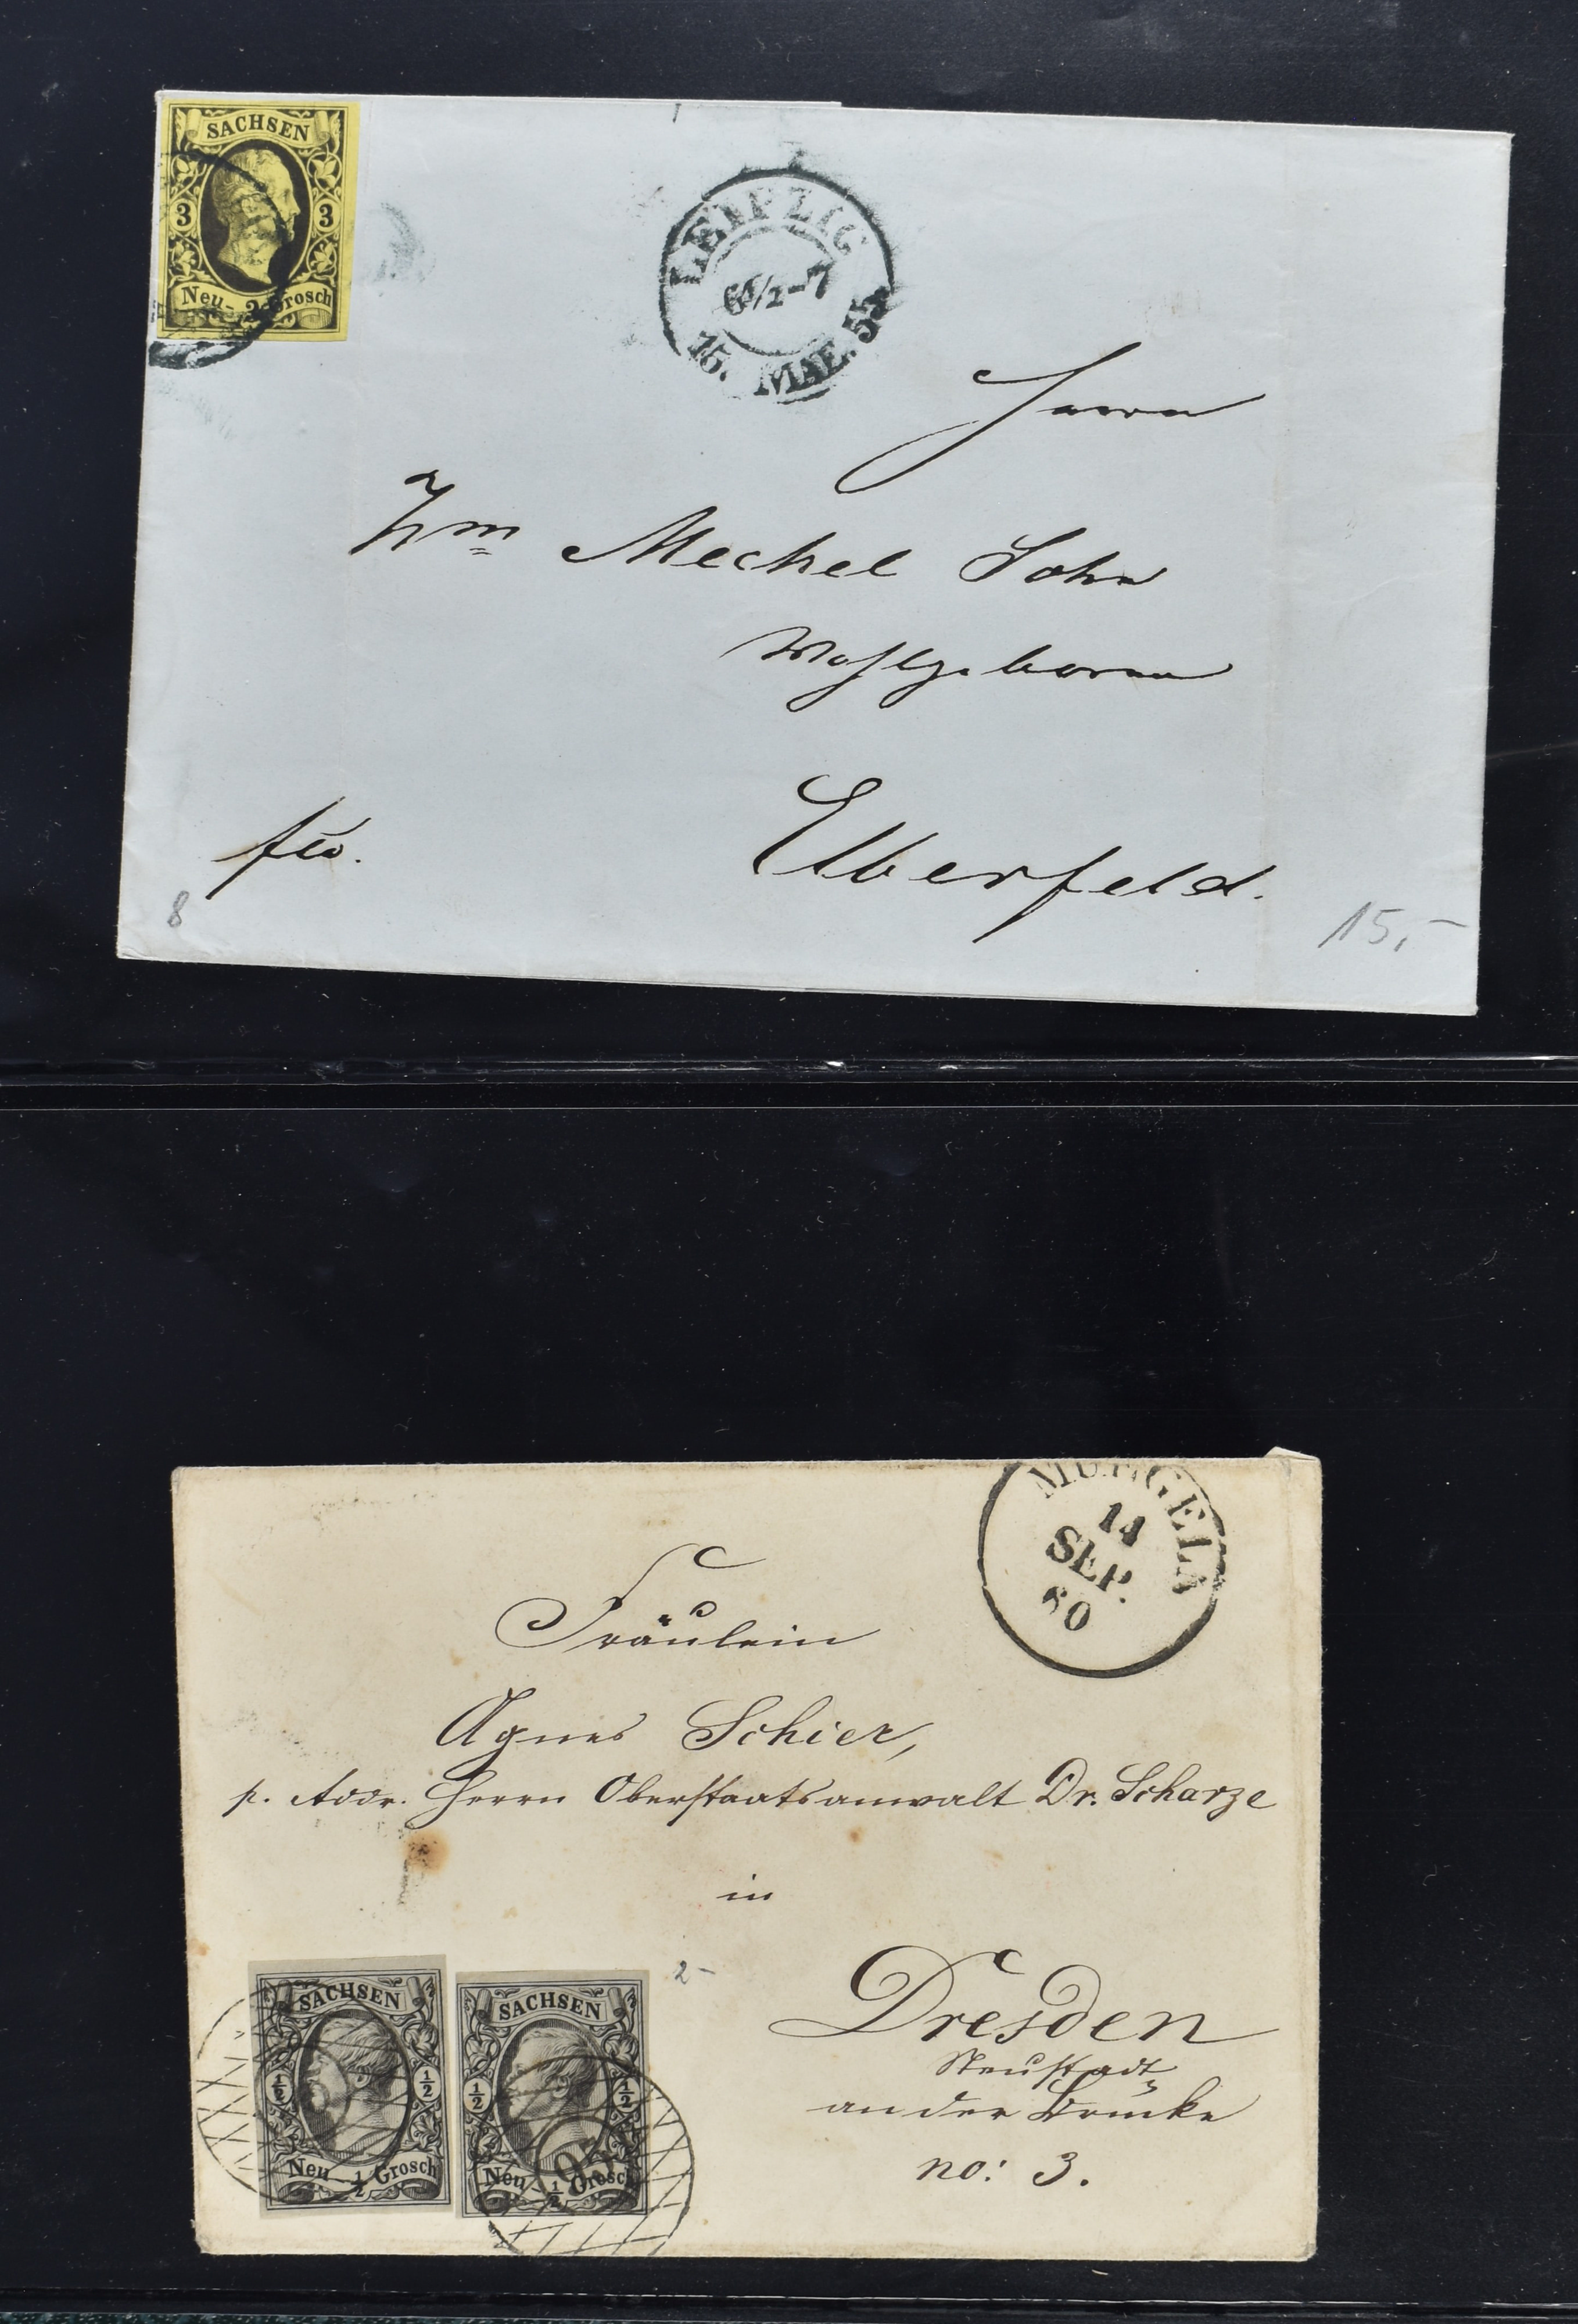 SACHSEN
3 3
Neu- 3 Grosch
LEIPZIG
6½-7
15. MAE. 55
Herrn
Wm Meckel Sohn
Wohlgeboren
Elberfeld.
fco.
8
15,-
MUEGELN
14
SEP.
60
Fräulein
Agnes Schier,
p. Addr. Herrn Oberstaatsanwalt Dr. Scharze
in
Dresden
Neustadt
an der Brücke
no: 3.
2-
SACHSEN
½ ½
Neu- ½ Grosch
SACHSEN
½ ½
Neu- ½ Grosch